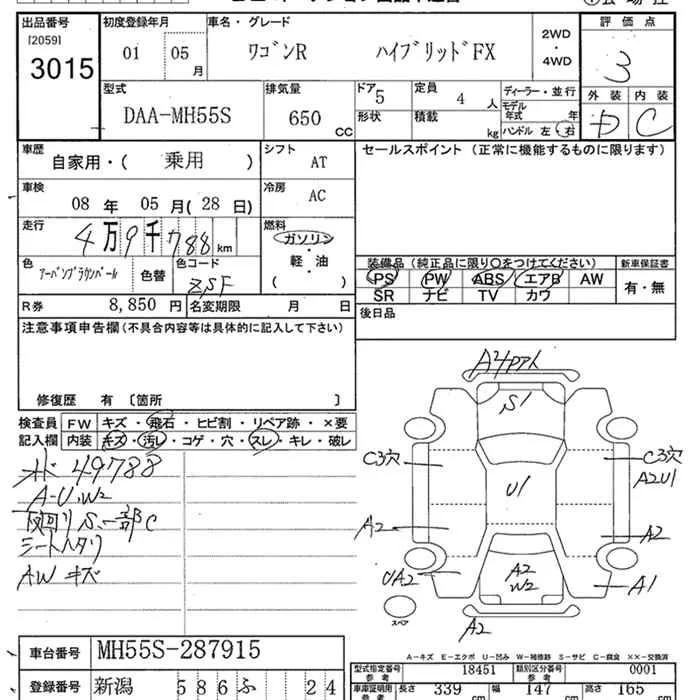 出品番号 初度登録年月 車名・グレード 評価点
[2059] 3015 01 05月 ワゴンR ハイブリッドFX 2WD・4WD 3
型式 排気量 ドア 5 定員 4 人 ディーラー・並行 外装 内装
DAA-MH55S 650 CC 形状 積載 kg モデル年式 年 D C
ハンドル 左・右
車歴 自家用・( 乗用 ) シフト AT セールスポイント (正常に機能するものに限ります)
車検 08年 05月(28日) 冷房 AC
走行 4万9千788km 燃料 ガソリン・軽・油 ( )
装備品(純正品に限り○をつけてください) 新車保証書
色 アーバンブラウンパール 色替 色コード ZSF PS PW ABS エアB AW 有・無
SR ナビ TV カワ
R券 8,850 円 名変期限 月 日 後日品
注意事項申告欄(不具合内容等は具体的に記入して下さい)
修復歴 有 〔箇所 〕
検査員 FW キズ・飛石・ヒビ割・リペア跡・×要
記入欄 内装 キズ・汚レ・コゲ・穴・スレ・キレ・破レ
49788
A-U.W2
下回りS.一部C
シートヘタリ
AW キズ
A4
S1
C3穴 C3穴
A2U1
U1
A2 A2
UA2 A2 A1
W2
A2
スペア
A-キズ E-エクボ U-凹み W-補修跡 S-サビ C-腐食 ××-交換済
車台番号 MH55S-287915
型式指定番号 参考 18451 類別区分番号 参考 0001
登録番号 新潟 586ふ 24
車庫証明用 参考 長さ 339 幅 147 高さ 165